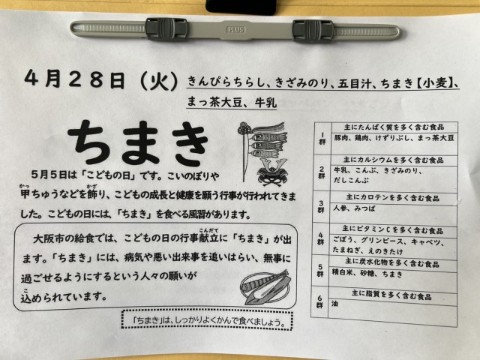 PLUS
4月28日（火）きんぴらちらし、きざみのり、五目汁、ちまき【小麦】、
まっ茶大豆、牛乳
ちまき
5月5日は「こどもの日」です。こいのぼりや
甲ちゅうなどを飾り、こどもの成長と健康を願う行事が行われてきま
した。こどもの日には、「ちまき」を食べる風習があります。
大阪市の給食では、こどもの日の行事献立に「ちまき」が出
ます。「ちまき」には、病気や悪い出来事を追いはらい、無事に
過ごせるようにするという人々の願いが
込められています。
「ちまき」は、しっかりよくかんで食べましょう。
1群 主にたんぱく質を多く含む食品
豚肉、鶏肉、けずりぶし、まっ茶大豆
2群 主にカルシウムを多く含む食品
牛乳、こんぶ、きざみのり、
だしこんぶ
3群 主にカロテンを多く含む食品
人参、みつば
4群 主にビタミンCを多く含む食品
ごぼう、グリンピース、キャベツ、
たまねぎ、えのきたけ
5群 主に炭水化物を多く含む食品
精白米、砂糖、ちまき
6群 主に脂質を多く含む食品
油